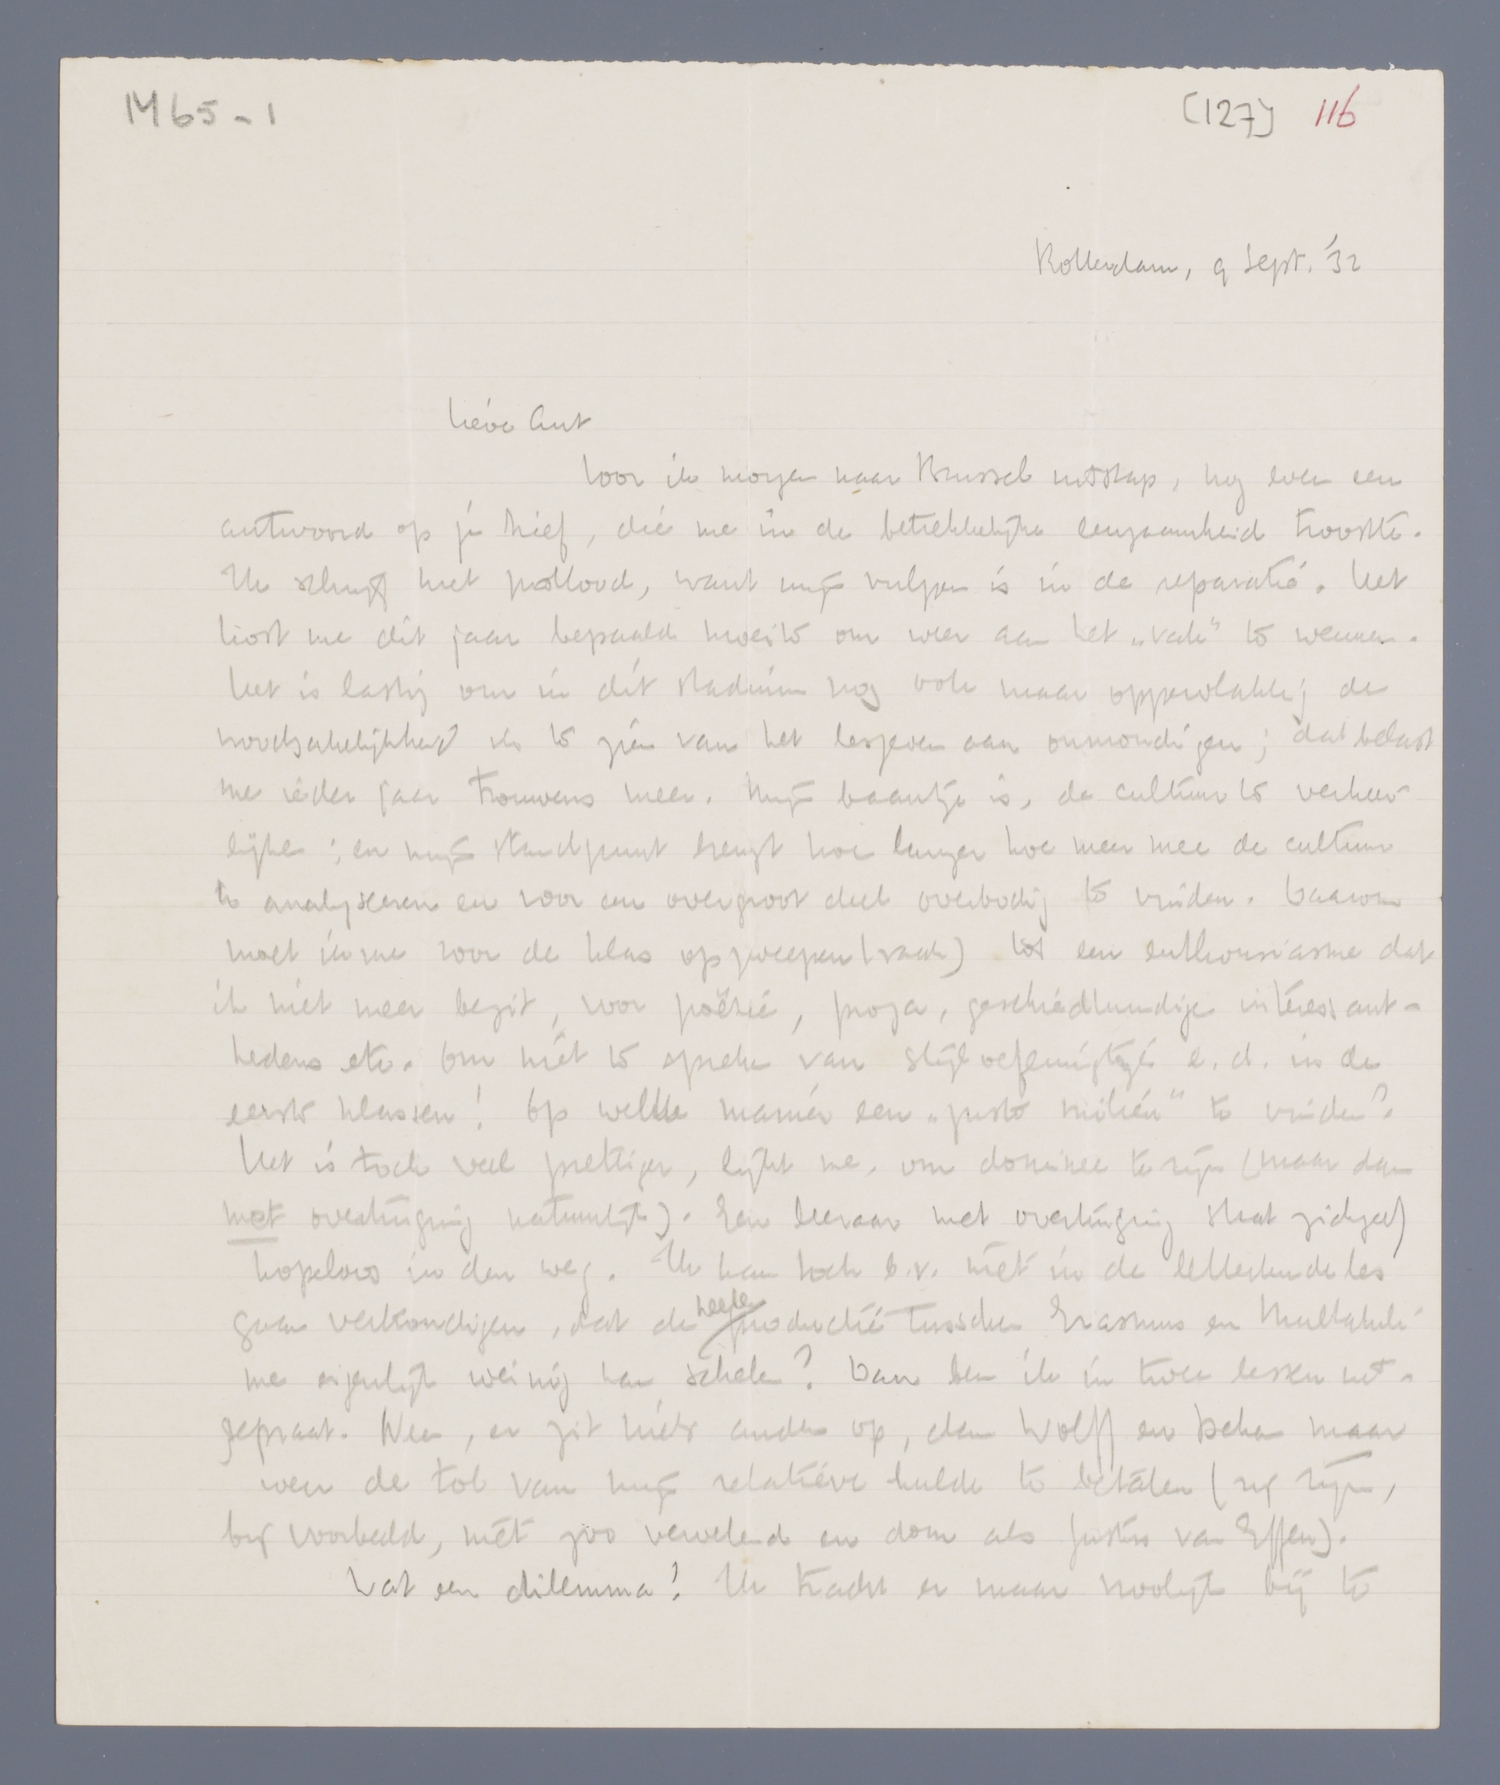 M65-1
(127) 116
Rotterdam, 9 Sept. '32
Lieve Ant
Voor ik morgen naar Brussel uitstap, nog even een
antwoord op je brief, die me in de betrekkelijke eenzaamheid troostte.
Ik schrijf met potlood, want mijn vulpen is in de reparatie. Het
kost me dit jaar bepaald moeite om weer aan het „vak” te wennen.
Het is lastig om in dit stadium nog ook maar oppervlakkig de
noodzakelijkheid in te zien van het lesgeven aan onmondigen; dat belast
me ieder jaar trouwens meer. Mijn baantje is, de cultuur te verheer-
lijken; en mijn standpunt brengt hoe langer hoe meer mee de cultuur
te analyseeren en voor een overgroot deel overbodig te vinden. Daarom
moet ik me voor de klas opzweepen (vaak) tot een enthousiasme dat
ik niet meer bezit, voor poëzie, proza, geschiedkundige interessant-
hedens etc. Om niet te spreken van stijloefeningtjes e.d. in de
eerste klassen! Op welke manier een „juste milieu” te vinden?
Het is toch veel prettiger, lijkt me, om dominee te zijn (maar dan
met overtuiging natuurlijk). Een leeraar met overtuiging staat zichzelf
hopeloos in den weg. Ik kan toch b.v. niet in de letterkundeles
gaan verkondigen, dat de heele productie tusschen Erasmus en Multatuli
me eigenlijk weinig kan schelen? Dan ben ik in twee lessen uit-
gepraat. Neen, er zit niets anders op, dan Wolff en Deken maar
weer de tol van mijn relatieve hulde te betalen (zij zijn,
bij voorbeeld, niet zoo vervelend en dom als Justus van Effen).
Wat een dilemma! Ik tracht er maar vroolijk bij te